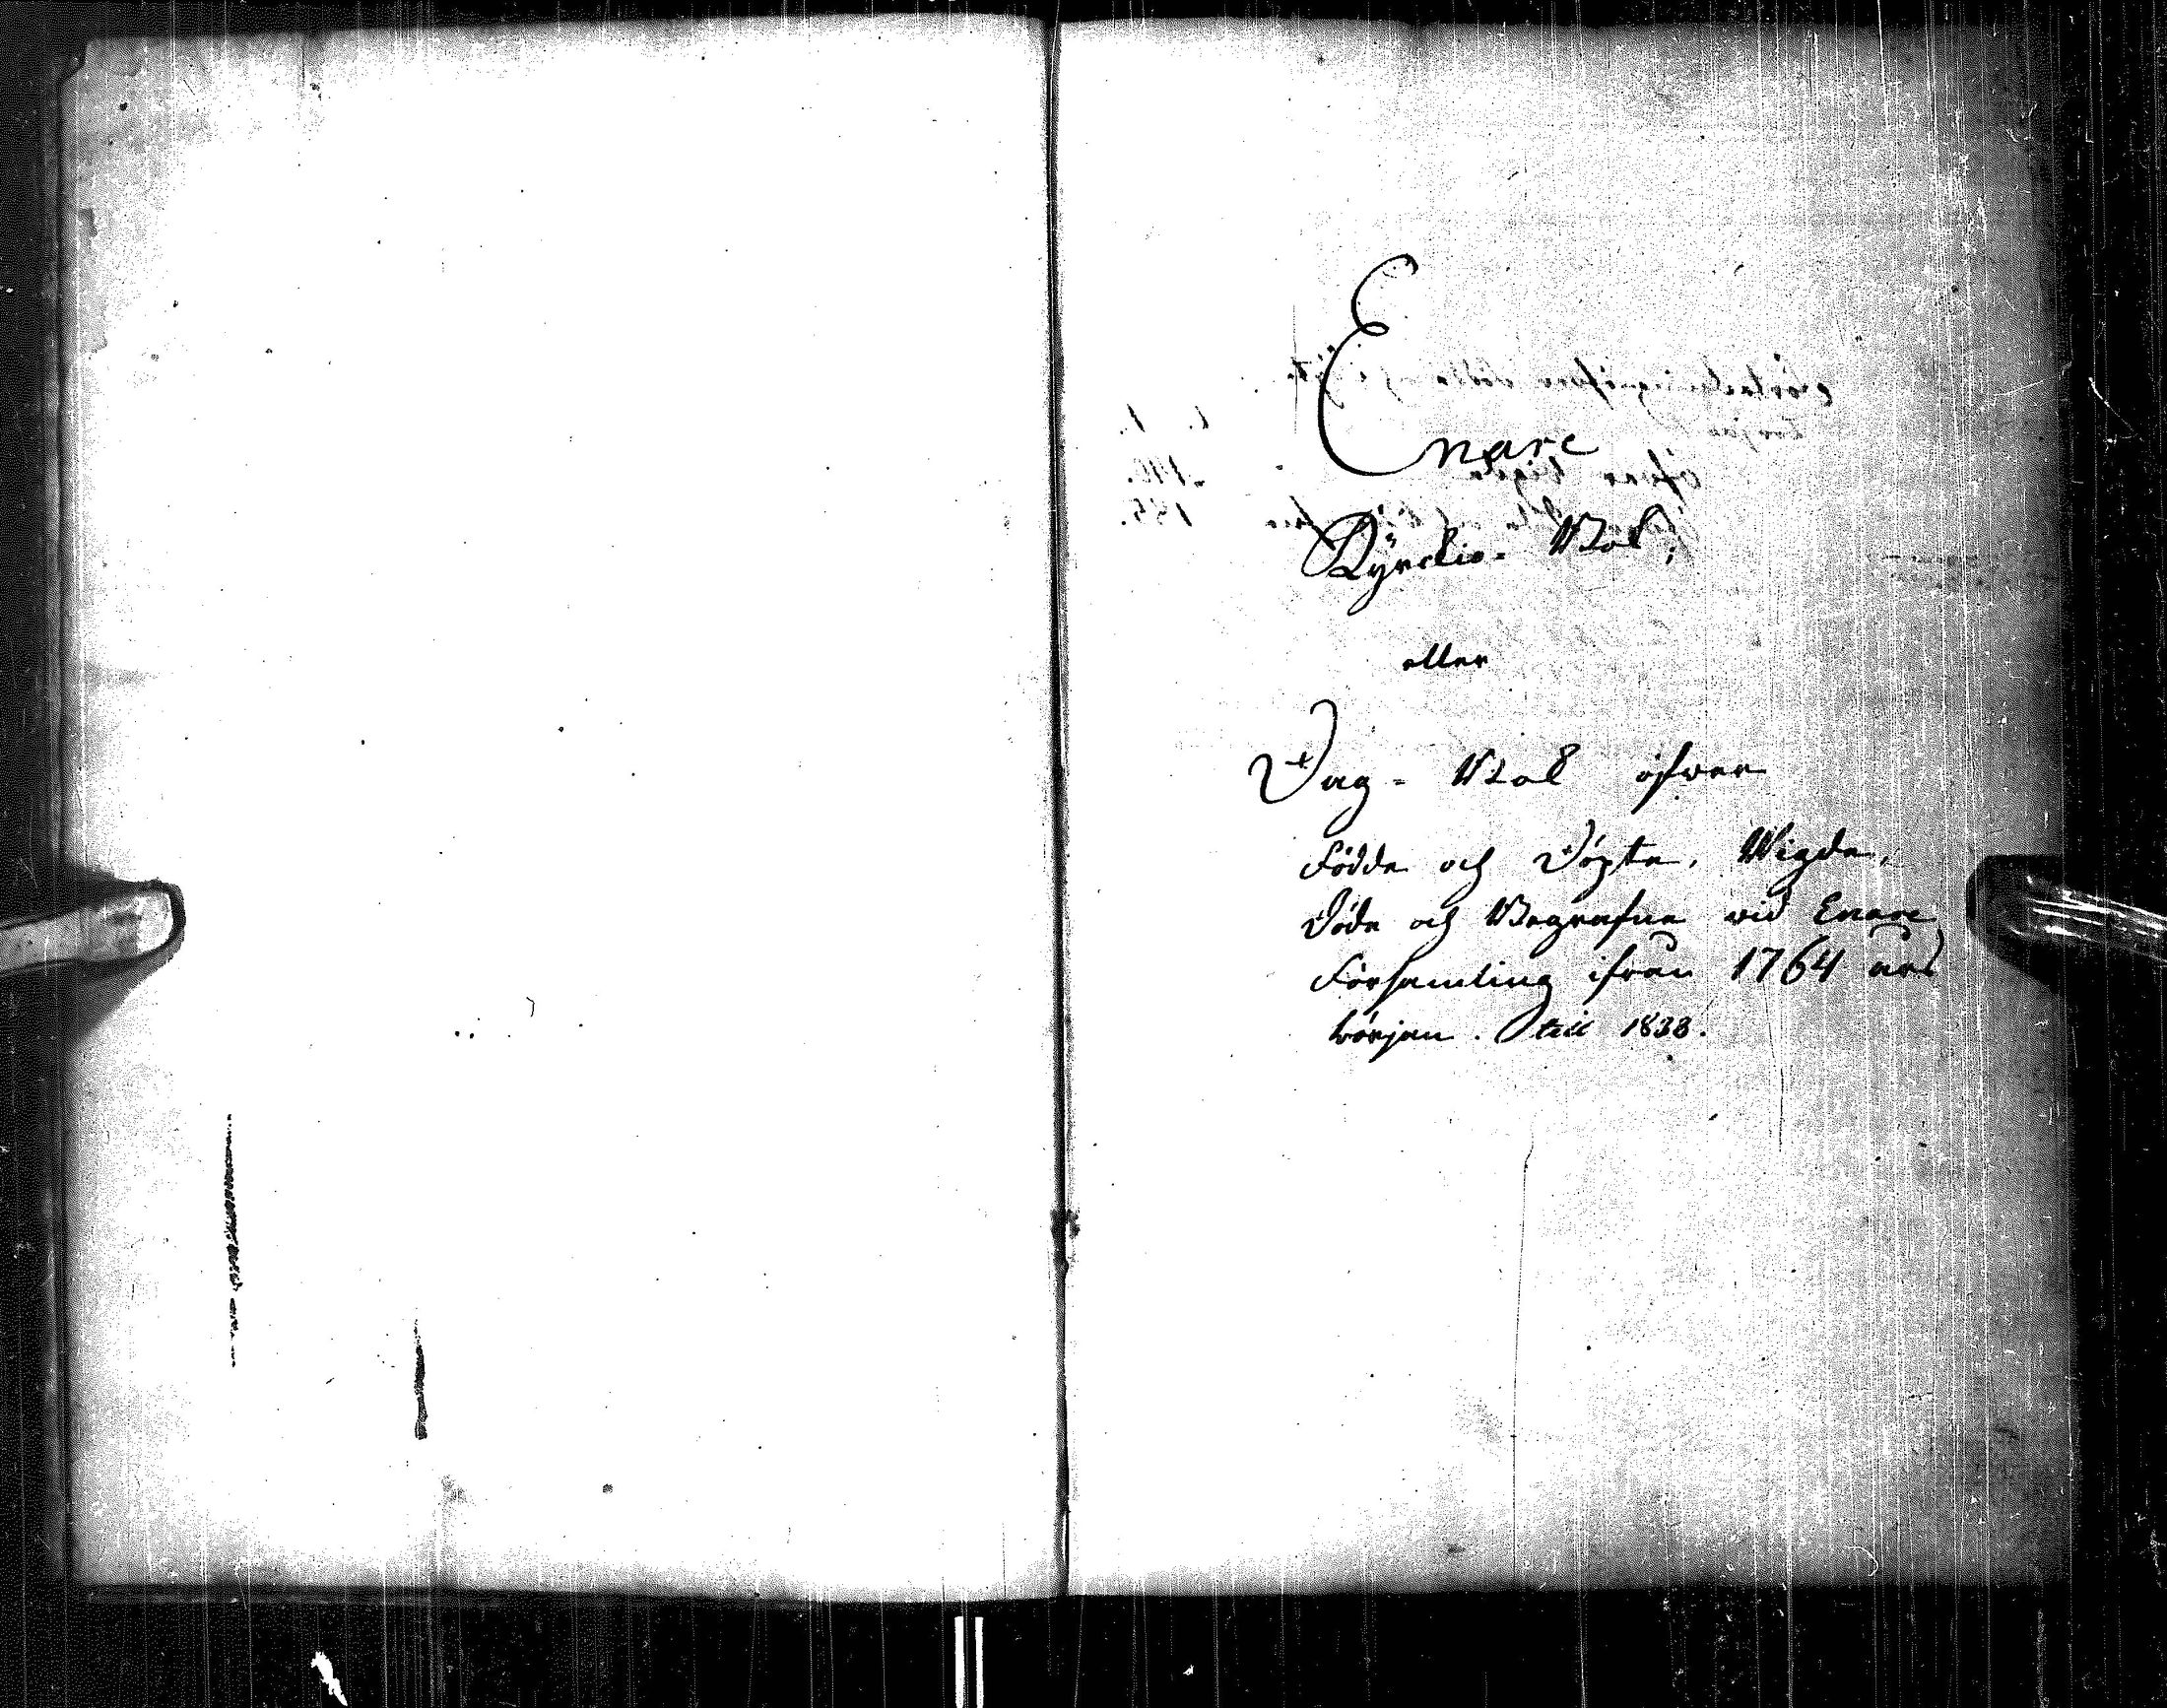 Enare
Kyrckio-Bok;
eller
Dag-Bok öfver
Födde och Döpte, Wigde,
Döde och Begrafne vid Enare
Församling ifrån 1764 års
början. till 1838.